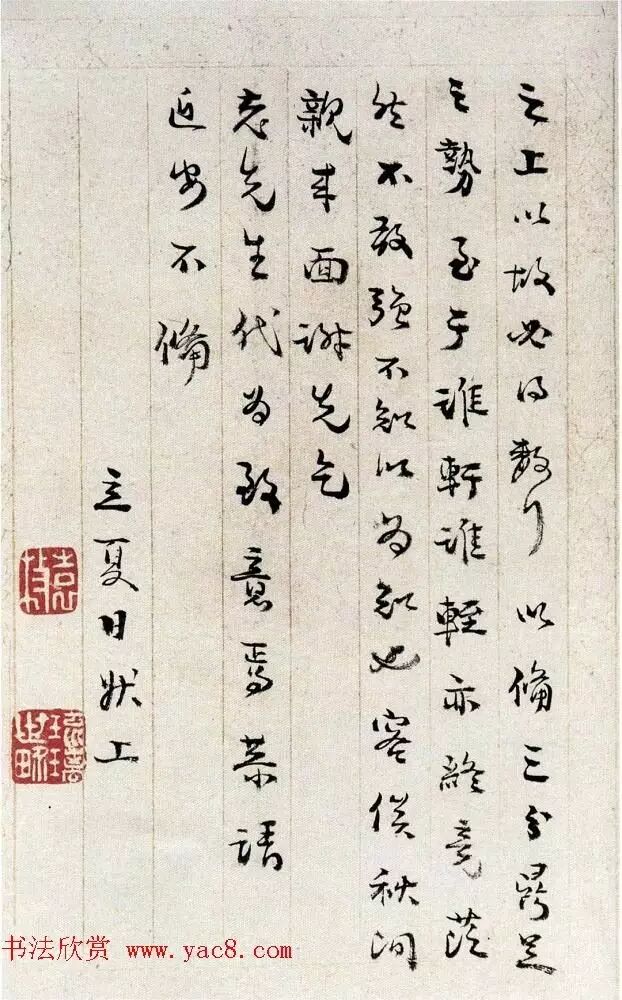 之上以故必得数行以備三分鼎足
之勢至于誰軒誰輊亦終竟茫
然不敢強不知以為知也容俟秋間
親来面謝先乞
老先生代為致意焉恭請
近安不備
立夏日狀上
书法欣赏 www.yac8.com